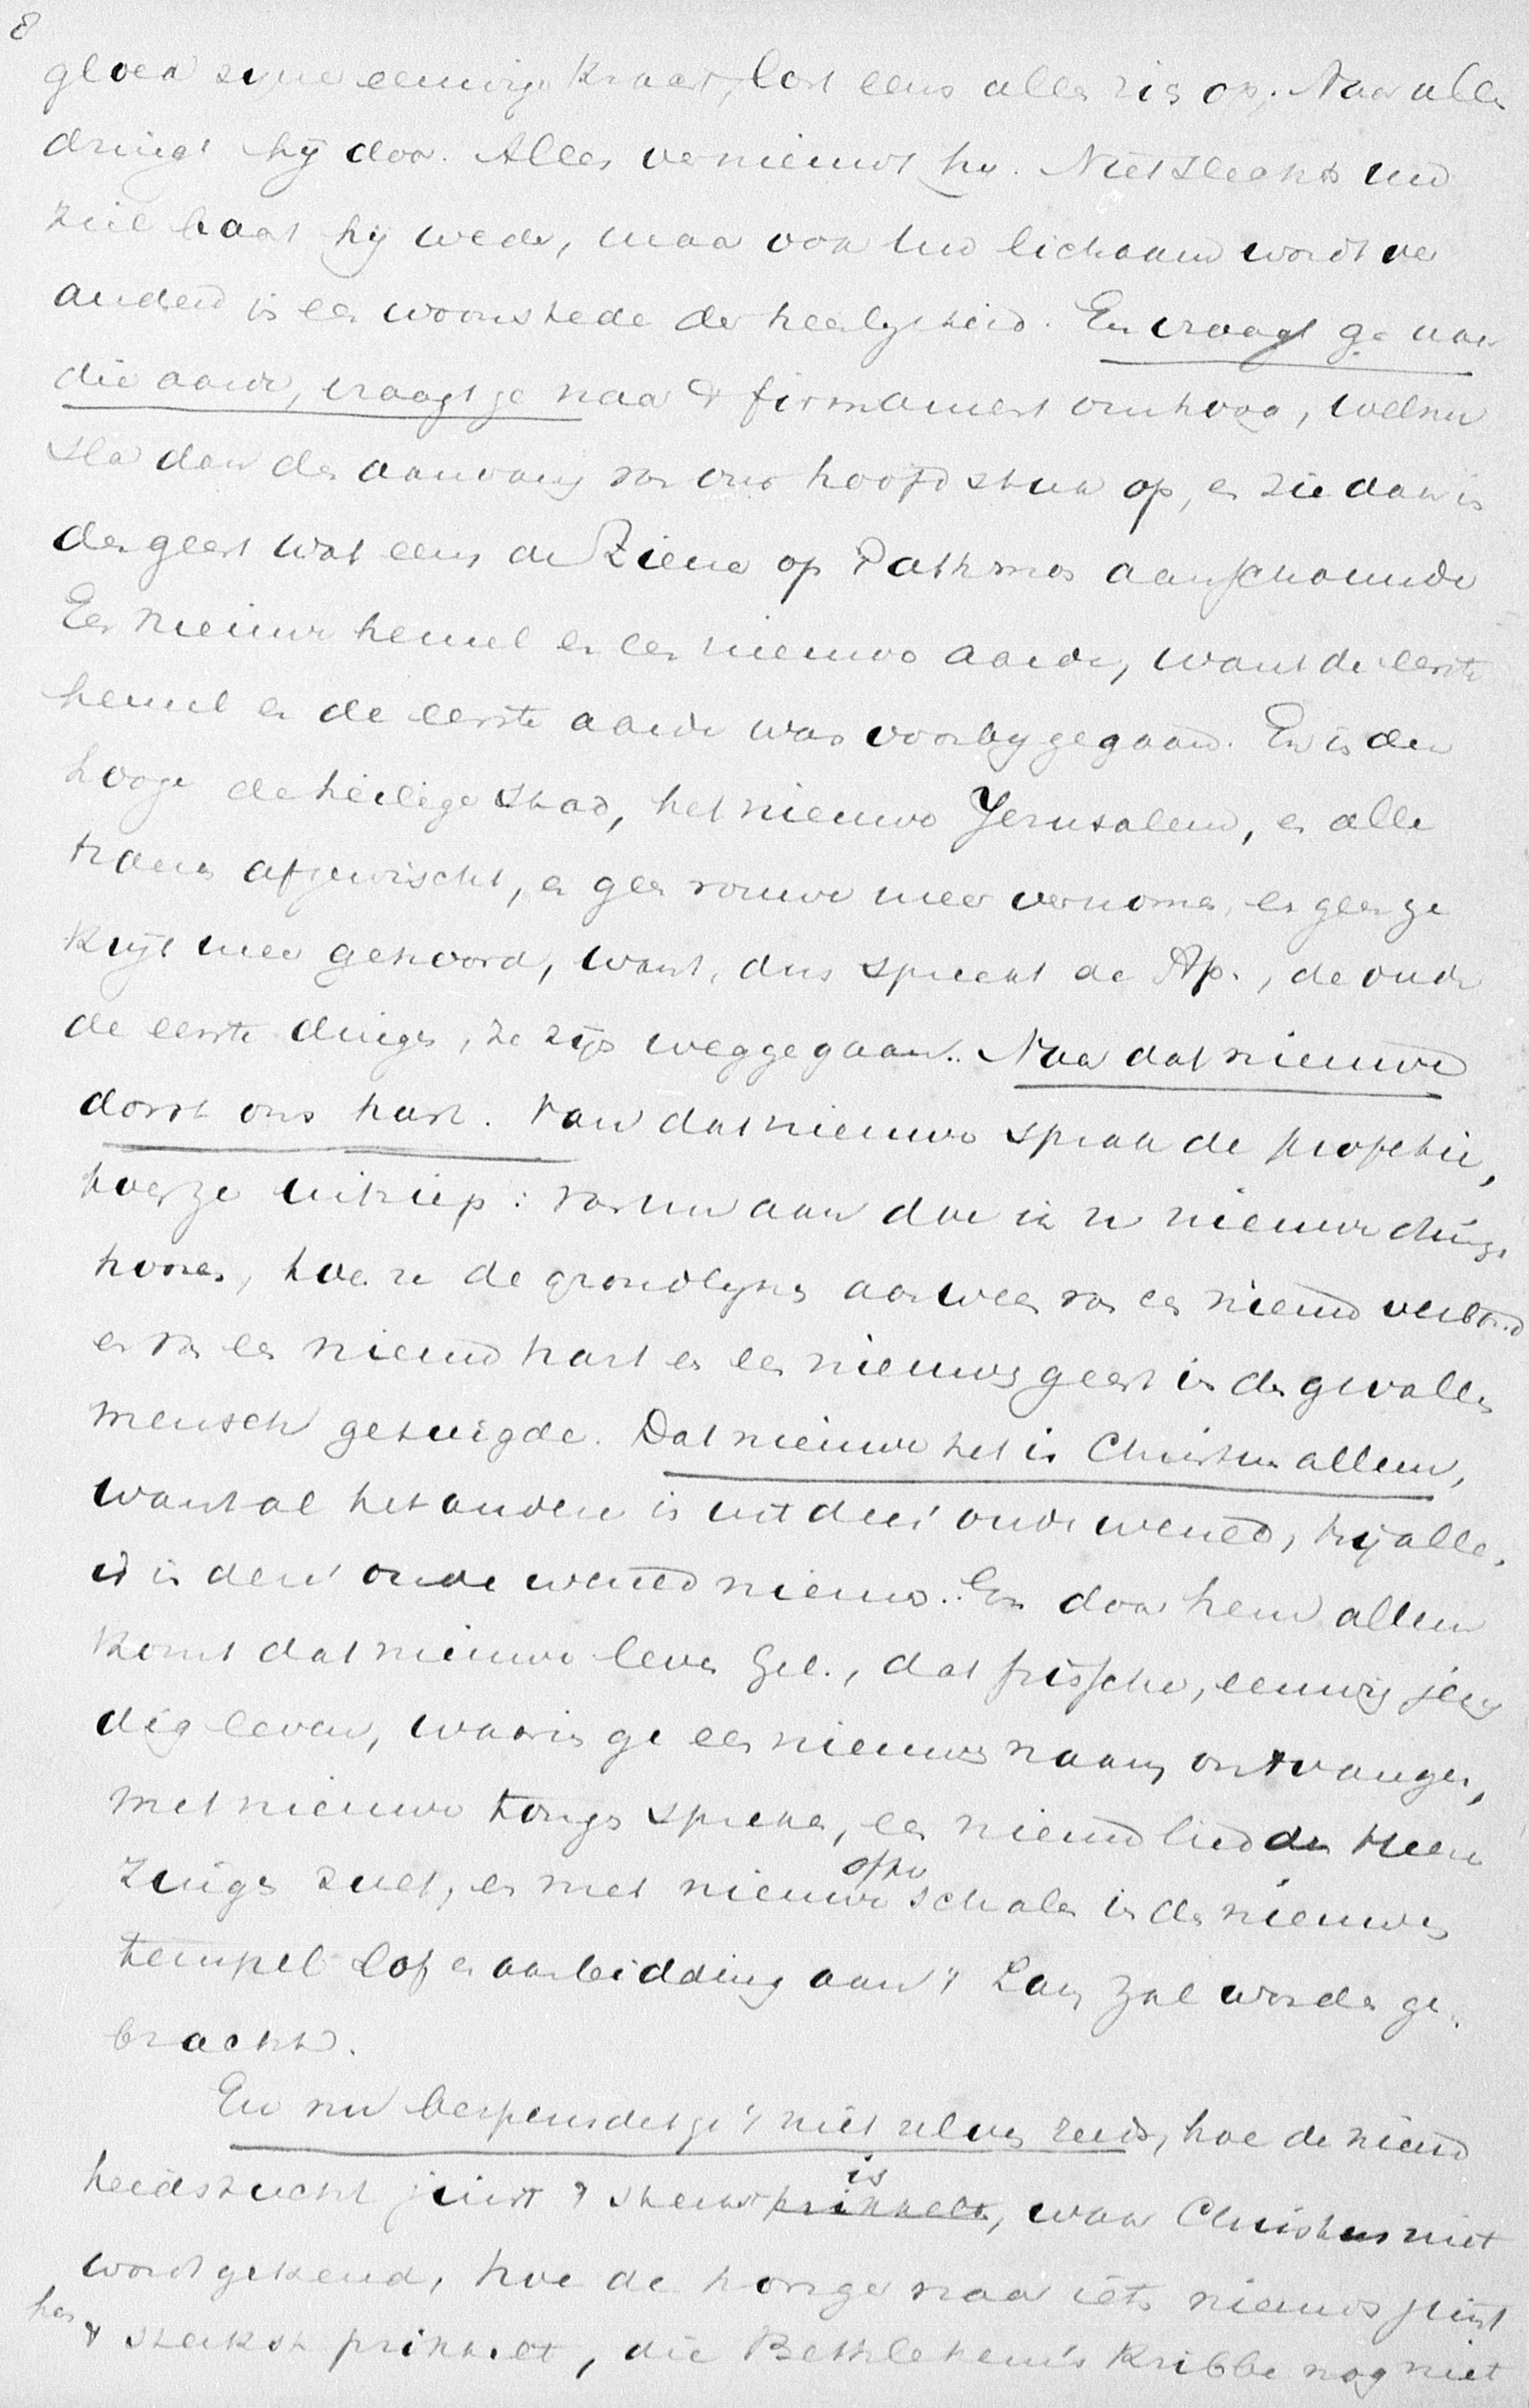 8
gloed zijne eeuwige kracht, lost eens alles zich op. Naar alles
dringt hij door. Alles vernieuwt hij. Niet slechts uw
ziel baart hij weder, maar ook uw lichaam wordt ver
anderd in een woonstede der heerlijkheid. En vraagt ge naar
die aarde, vraagt ge naar 't firmament omhoog, welnu
sla dan den aanvang van ons hoofdstuk op, en zie dan in
den geest wat eens de Ziener op Pathmos aanschouwde
Een nieuwe hemel en een nieuwe aarde, want de eerste
hemel en de eerste aarde was voorbijgegaan. En in den
hooge de heilige stad, het nieuwe Jerusalem, en alle
tranen afgewischt, en geen rouwe meer vernomen, en geen ge
krijt meer gehoord, want, dus spreekt de Ap., de oude
de eerste dingen, ze zijn weggegaan.. Naar dat nieuwe
dorst ons hart. Van dat nieuwe sprak de profetie,
toen ze uitriep: van nu aan doe ik u nieuwe dingen
hooren, toen ze de grondlijnen aanwees van een nieuw verbond
en van een nieuw hart en een nieuwen geest in den gevallen
mensch getuigde. Dat nieuwe het is Christus alleen,
want al het andere is uit deez' oude wereld, hij alleen
is in deez' oude wereld nieuw.. En door hem alleen
komt dat nieuwe leven Gel., dat frissche, eeuwig jeug
dig leven, waarin ge een nieuwen naam ontvangen,
met nieuwe tongen spreken, een nieuw lied den Heere
zingen zult, en met nieuwe offerschalen in den nieuwen
tempel lof en aanbidding aan 't Lam zal worden ge-
bracht.
En nu bespeurdet ge 't niet zelven reeds, hoe de nieuw
heidszucht juist 't sterkst prikkelt, is waar Christus niet
wordt gekend, hoe de honger naar iets nieuws juist
hen 't sterkst prikkelt, die Bethlehem's Kribbe nog niet